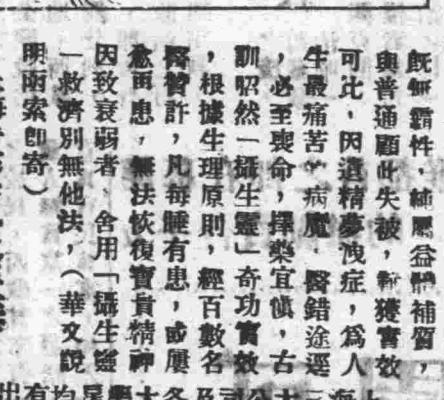 既無霸性，純屬益體補質，
與普通顧此失被，獲實效
可比，因遺精夢洩症，為人
生最痛苦的病魔，醫錯途逕
，必至喪命，擇藥宜愼，古
訓昭然「攝生靈」奇功實效
，根據生理原則，經百數名
醫贊許，凡每睡有患，或屢
愈而患，無法恢復寶貴精神
因致衰弱者、舍用「攝生靈
一救濟別無他法，（華文說
明函索卽寄）